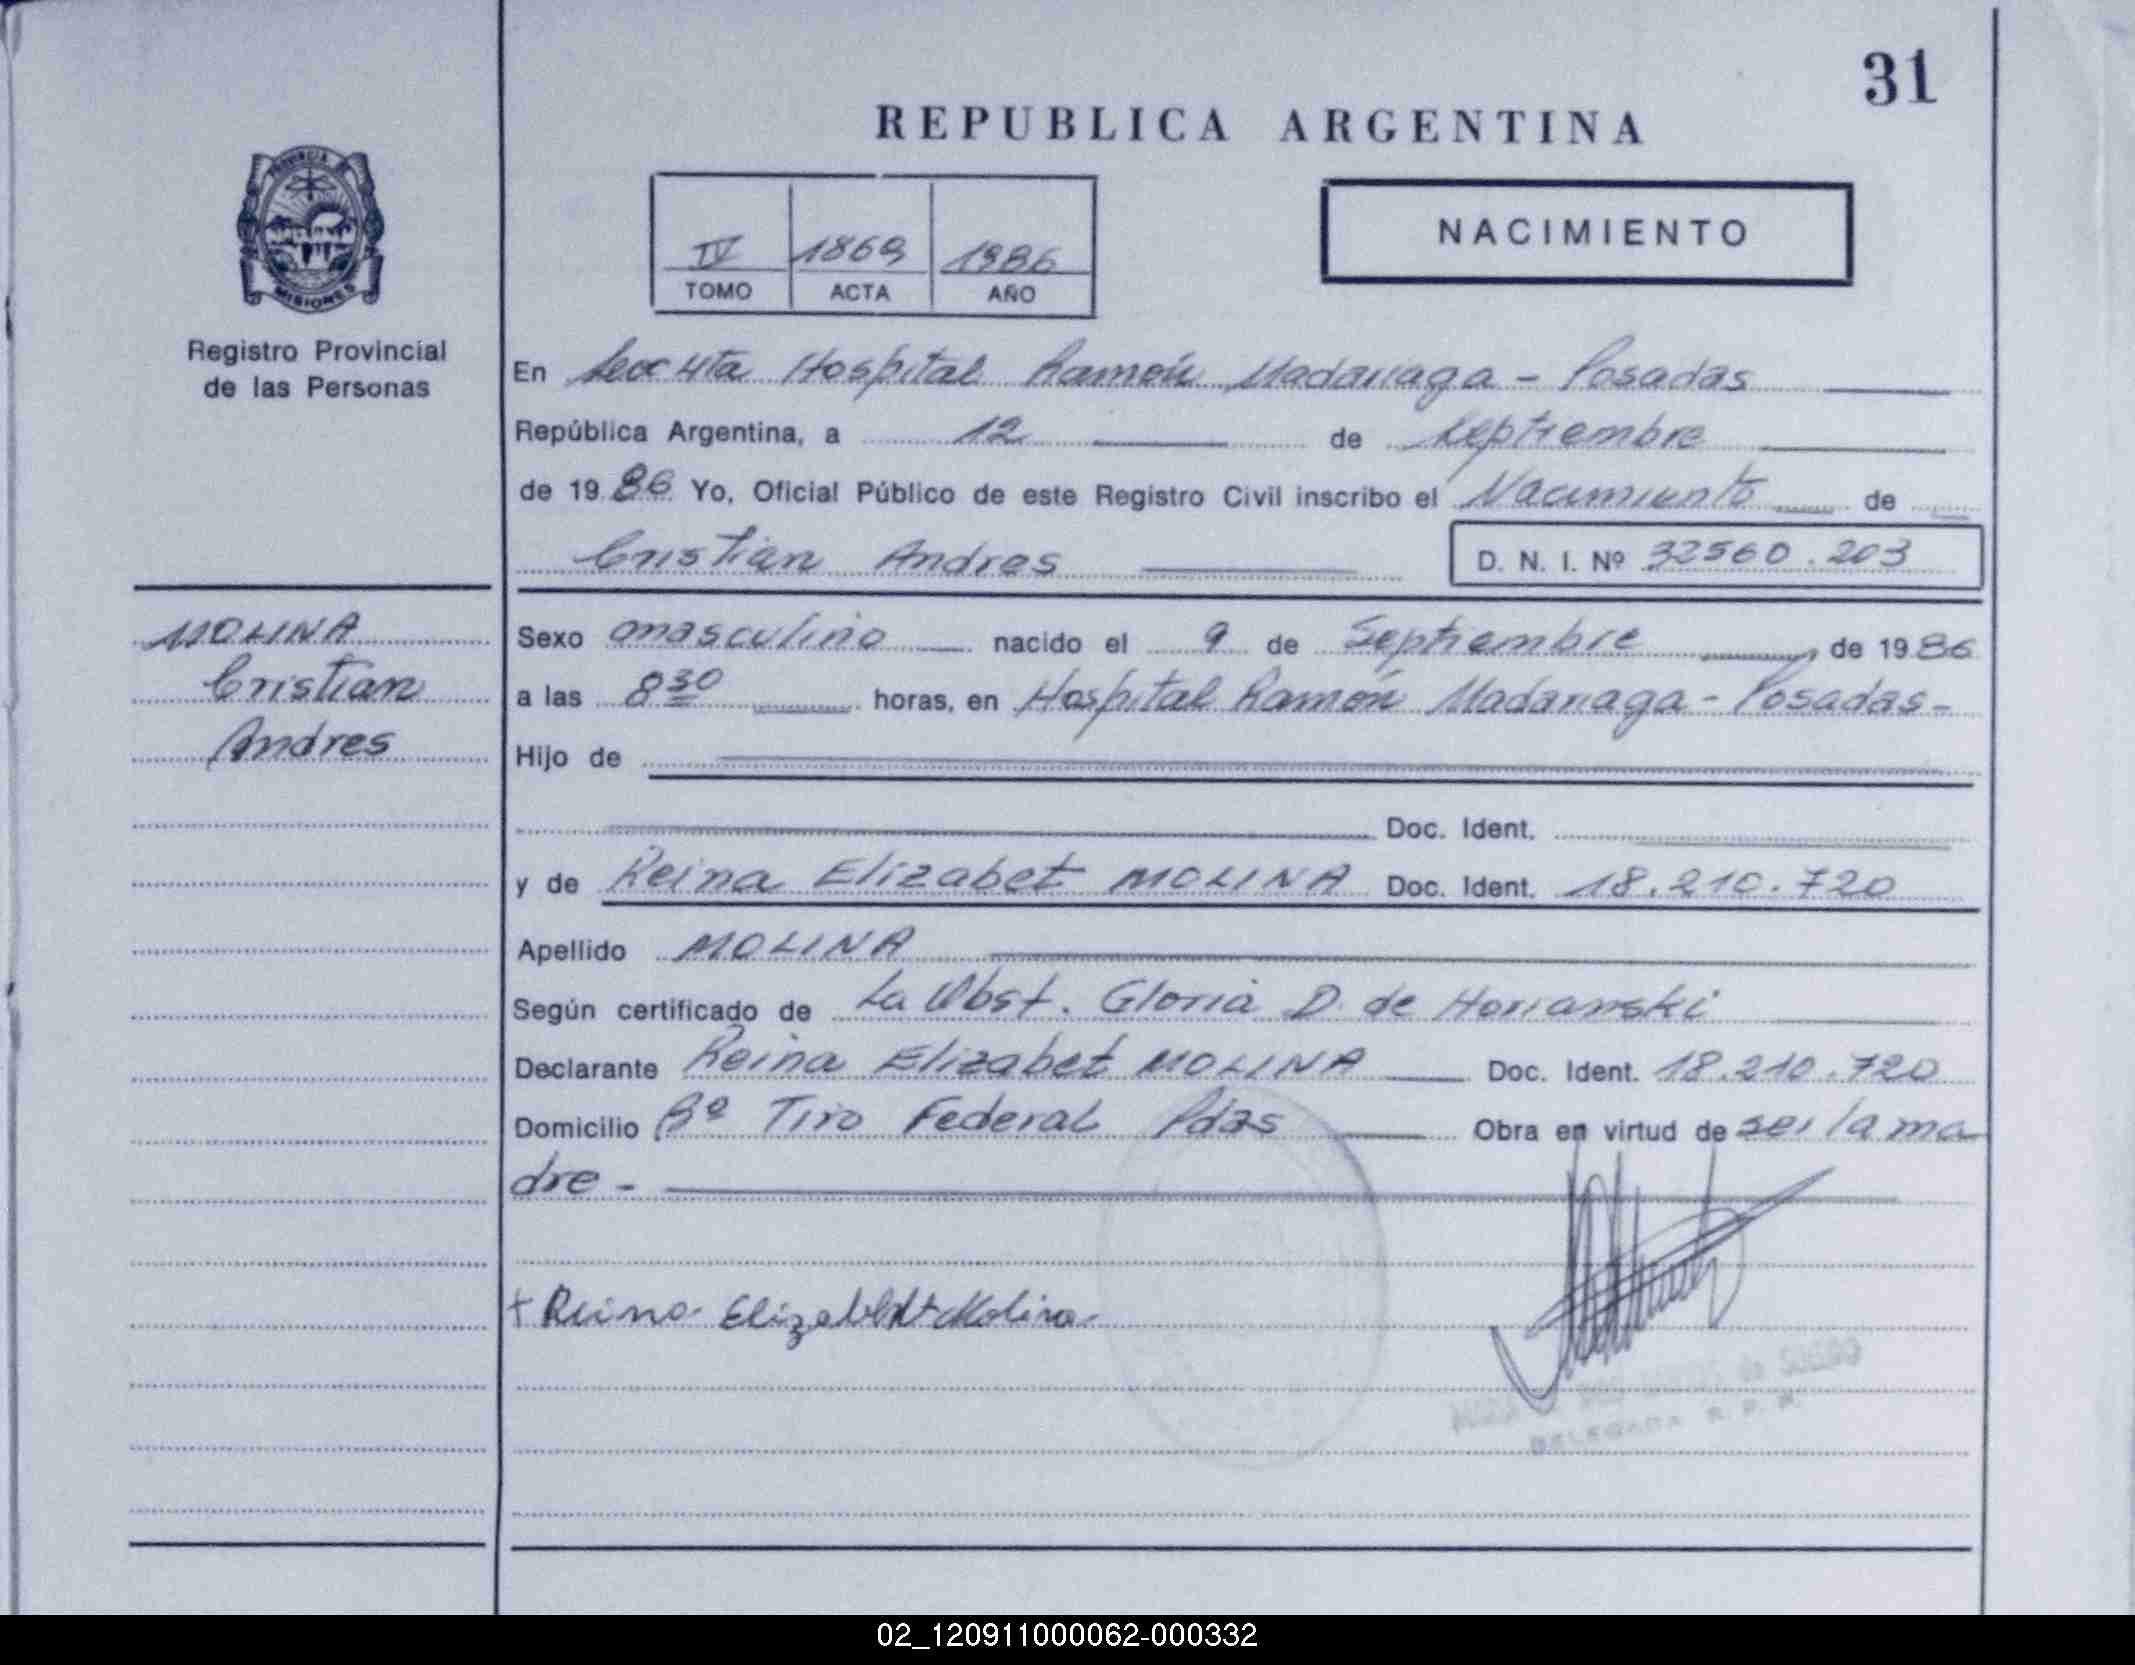 31
REPUBLICA ARGENTINA
PROVINCIA
MISIONES
Registro Provincial
de las Personas
IV 1869 1986
TOMO ACTA AÑO
NACIMIENTO
En Secc 4ta Hospital Ramón Madariaga - Posadas
República Argentina, a 12 de Septiembre
de 1986 Yo, Oficial Público de este Registro Civil inscribo el Nacimiento de
Cristian Andres D. N. I. Nº 32560.203
MOLINA
Cristian
Andres
Sexo masculino nacido el 9 de Septiembre de 1986
a las 8 30 horas, en Hospital Ramón Madariaga - Posadas-
Hijo de
Doc. Ident.
y de Reina Elizabet MOLINA Doc. Ident. 18.210.720
Apellido MOLINA
Según certificado de La Obst. Gloria D. de
Declarante Reina Elizabet MOLINA Doc. Ident. 18.210.720
Domicilio Bº Tiro Federal Pdas Obra en virtud de ser la ma
dre -
+ Reina Elizabeht Molina
DELEGADA R. P. P.
02_120911000062-000332